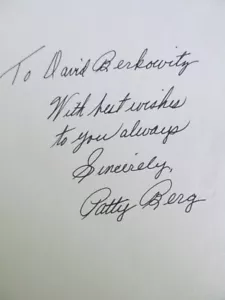 To David Berkowitz
With best wishes
to you always
Sincerely,
Patty Berg